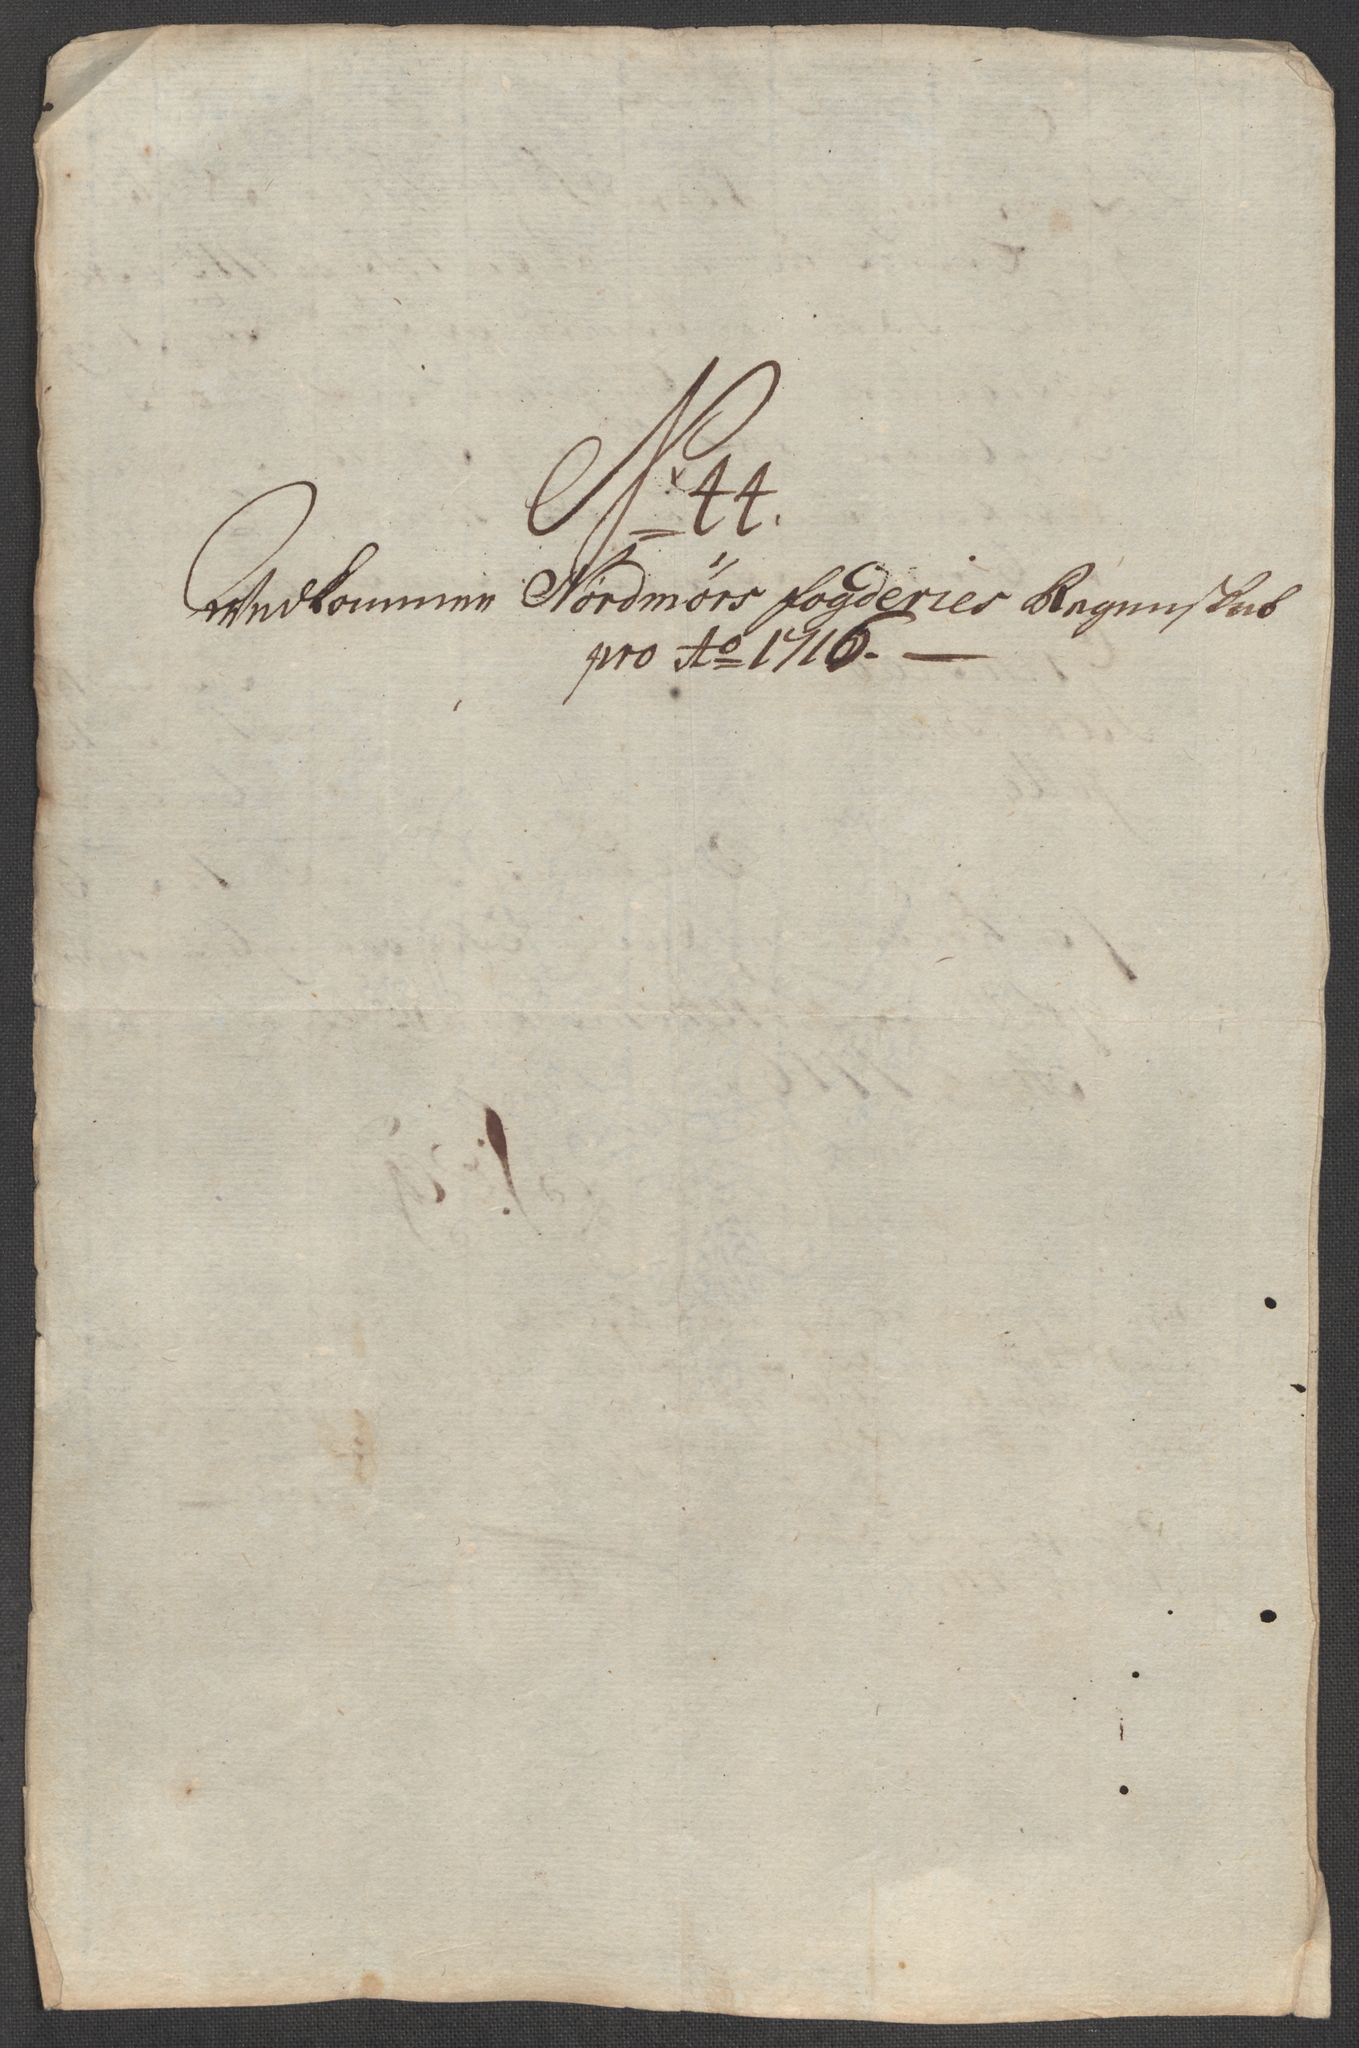 No 44.
Vedkommer Nordmörs fogderies Regenskab
pro Ao 1716.